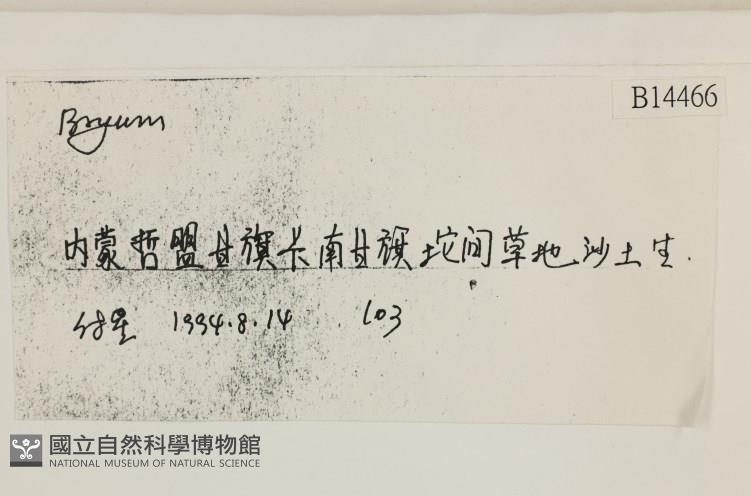 B14466
Bryum
内蒙哲盟甘旗卡南甘旗坨间草地沙土生.
付星 1994.8.14 103
國立自然科學博物館
NATIONAL MUSEUM OF NATURAL SCIENCE